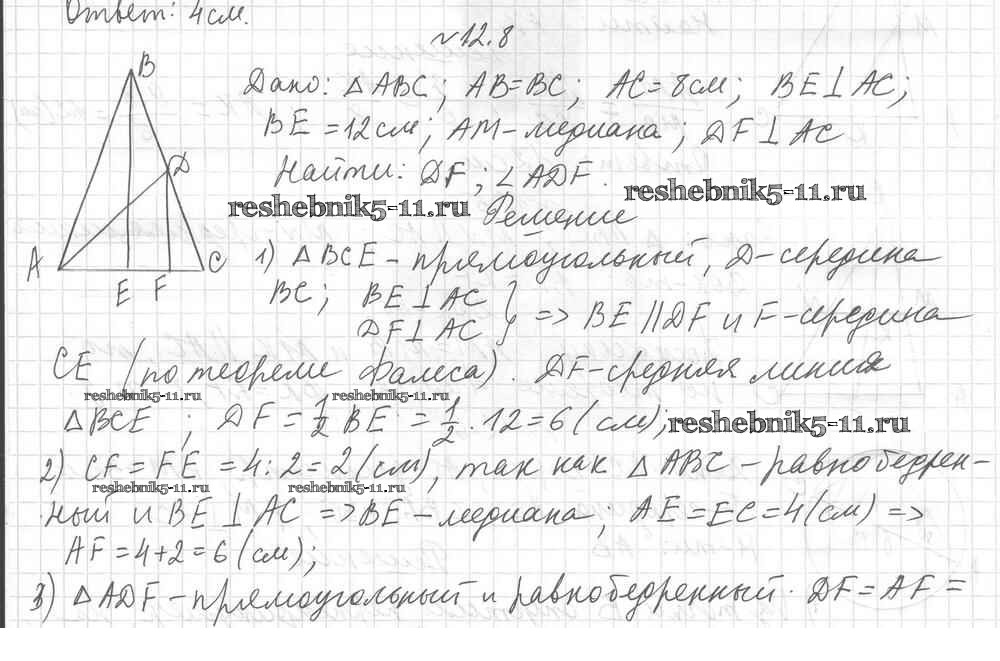 Ответ: 4см.
№12.8
B
Дано: △ABC; AB=BC; AC=8см; BE⊥AC;
BE=12см; AM-медиана; DF⊥AC
Найти: DF; ∠ADF.
D
reshebnik5-11.ru Решение reshebnik5-11.ru
A E F C
1) △BCE-прямоугольный, D-середина
BC; BE⊥AC
DF⊥AC } => BE||DF и F-середина
CE (по теореме Фалеса). DF-средняя линия
reshebnik5-11.ru reshebnik5-11.ru
△BCE; DF=1/2 BE=1/2·12=6(см); reshebnik5-11.ru
2) CF=FE=4:2=2(см), так как △ABC-равнобедрен-
reshebnik5-11.ru reshebnik5-11.ru
ный и BE⊥AC => BE-медиана; AE=EC=4(см) =>
AF=4+2=6(см);
3) △ADF-прямоугольный и равнобедренный. DF=AF=